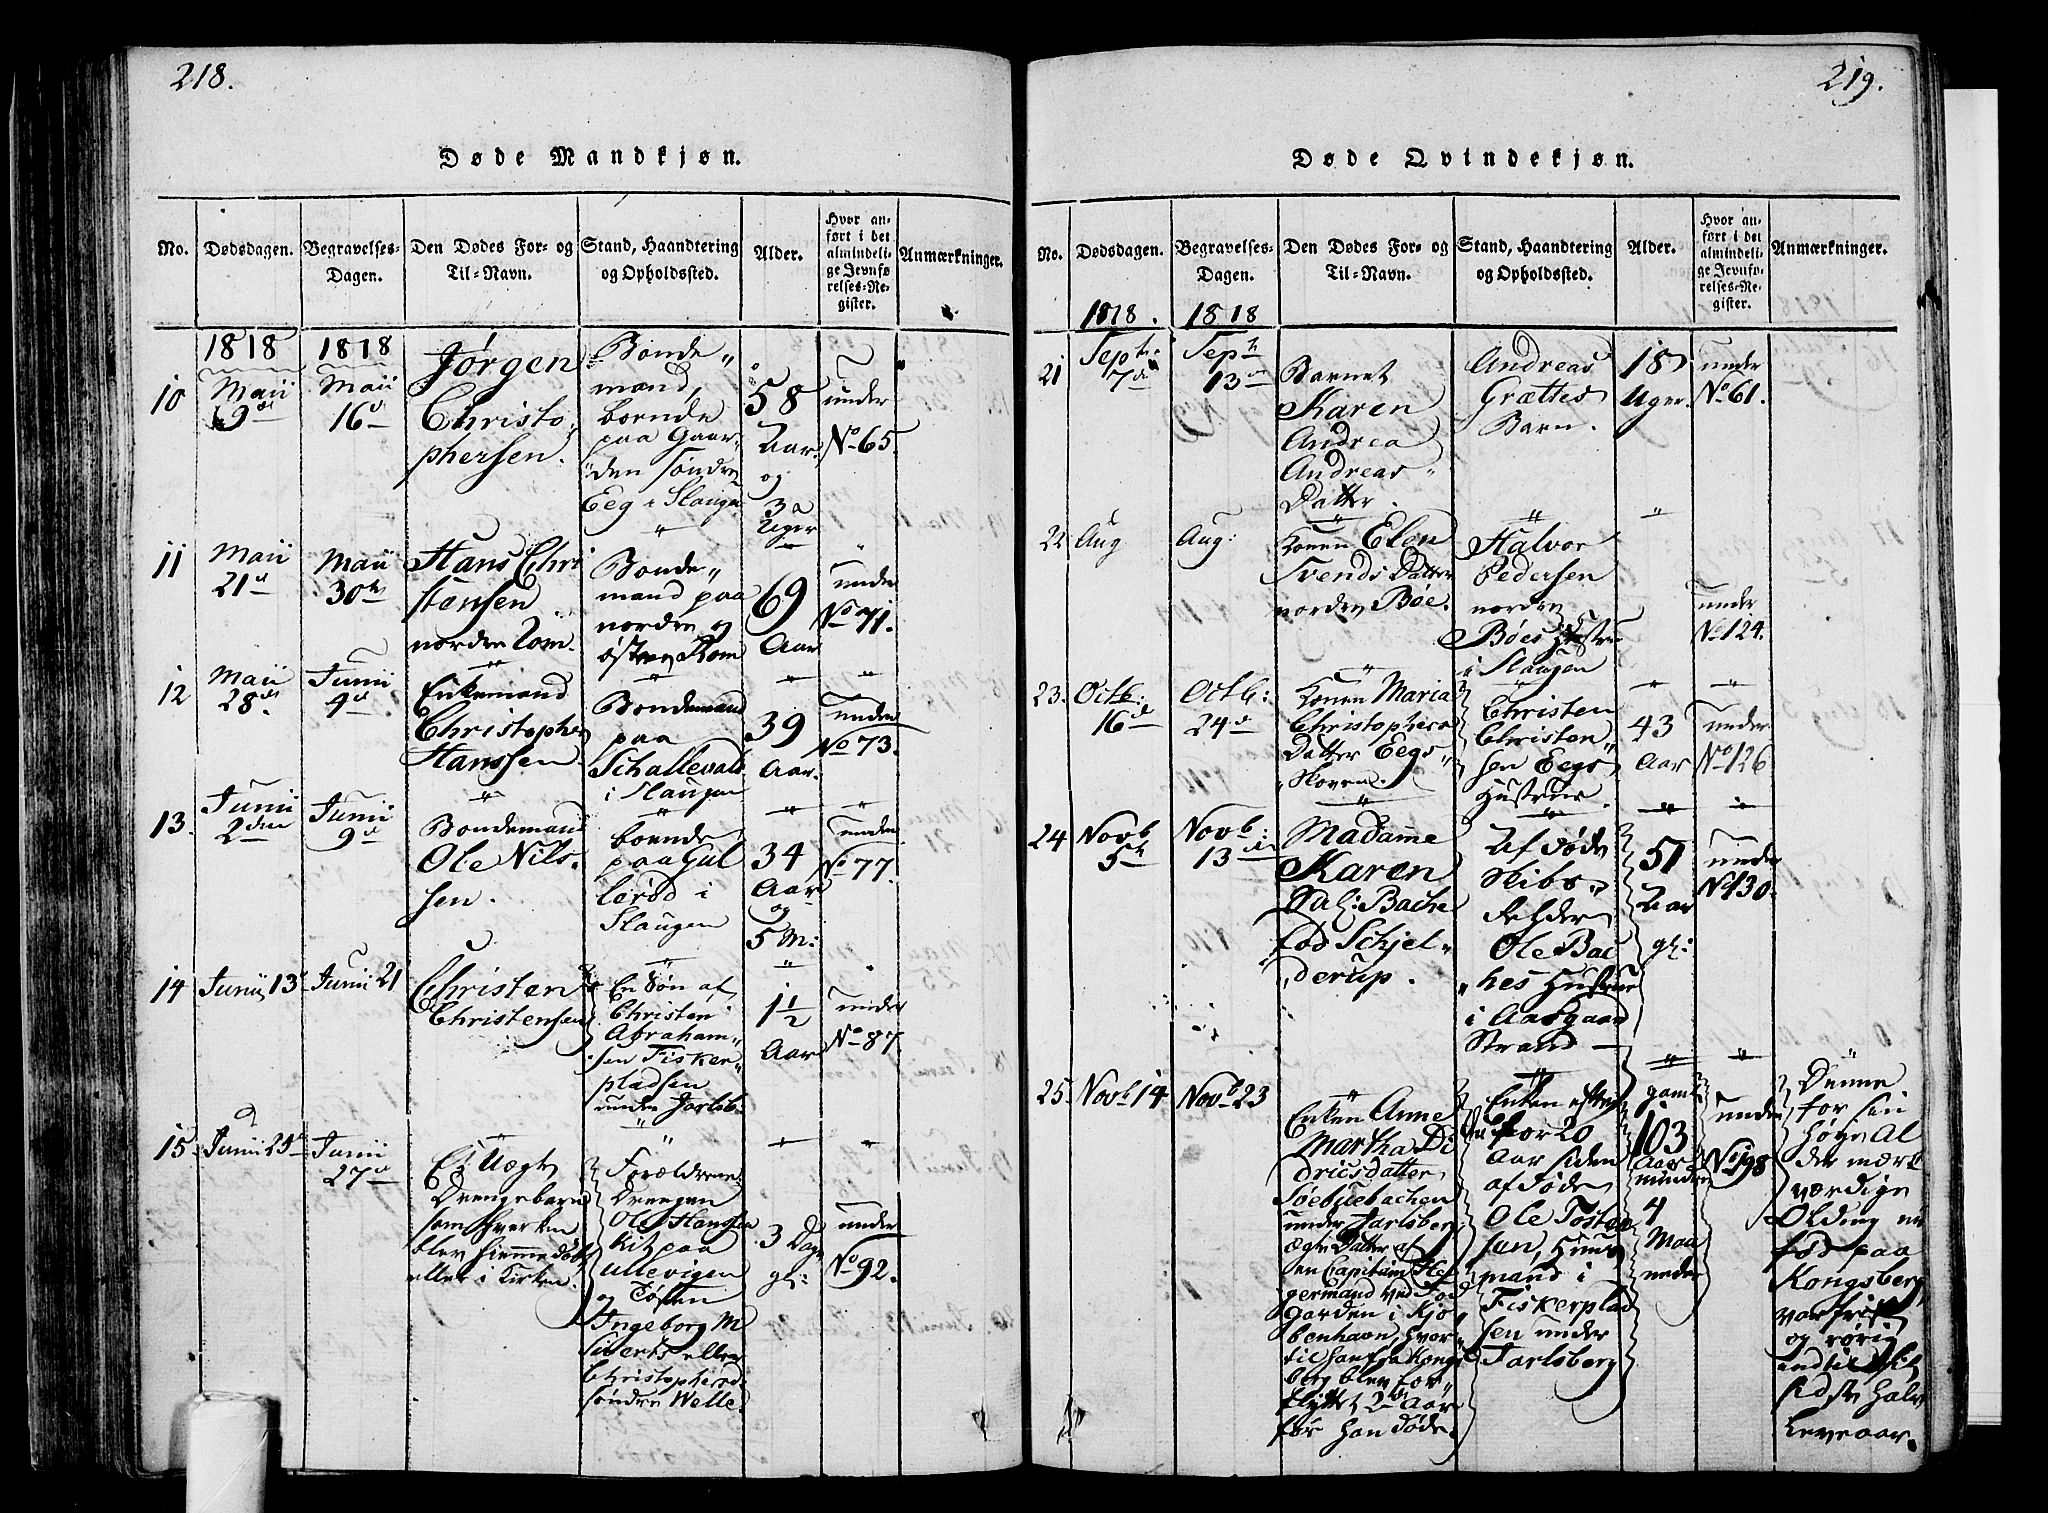 218.
Døde Mandkjøn.
No.
Dødsdagen.
Begravelses-
Dagen.
Den Dødes For- og
Til-Navn.
Stand, Haandtering
og Opholdssted.
Alder.
Hvor an-
ført i det
almindeli-
ge Jevnfø-
relses-Re-
gister.
Anmærkninger.
1818
1818
10
Maii
9de
Maii
16d
Jørgen
Christo
phersen.
Bonde
mand,
boende
paa Gaar
den Søndre
Eeg i Slaugen
58
Aar
og
3
Uger
under
No 65.
11
Maii
21d
Maii
30te
Hans Chri
stensen
nordre Rom.
Bonde
mand paa
nordre og
østre Rom
69
Aar
under
No 71.
12
Maii
28de
Junii
4d
Enkemand
Christopher
Hanssen.
Bondemand
paa
Schallevald
i Slaugen
39
Aar.
under
No 73.
13.
Junii
2den
Junii
9d
Bondemand
Ole Nils-
sen.
boende
paa Gul
lerød i
Slaugen
34
Aar
og
5 M:
under
No 77.
14
Junii 13d
Junii 21
Christen
Christensen
En Søn af
Christen
Abraham
sen Fisker
pladsen
under Jarlsb.
1½
Aar
under
No 87.
15.
Junii 25d
Junii
27d
Et Uægte
Drengebarn
som hverken
blev hiemmedøbt
eller i Kirken.
Forældrene
Drengen
Ole Hanssen
paa
Ullevigen
og Tøsen
Ingeborg M
Siverts eller
Christophersd
søndre Welle.
3 Dage
gl:
under
No 92.
219.
Døde Qvindekjøn.
No.
Dødsdagen.
Begravelses-
Dagen.
Den Dødes For- og
Til-Navn.
Stand, Haandtering
og Opholdssted.
Alder.
Hvor an-
ført i det
almindeli-
ge Jevnfø-
relses-Re-
gister.
Anmærkninger.
1818.
1818
21
Septb:
7de
Septb
13de
Barnet
Karen
Andrea
Andreas
Datter.
Andreas
Grættes
Barn.
18
Uger.
under
No 61.
22
Aug
Aug:
Konen Elen
Svends Datter
norden Bøe.
Halvor
Pedersen
norden
Bøes Hustrue
i Slaugen
under
No 124.
23.
Octb:
16d
Octb:
24d
Konen Maria
Christophers
Datter Eegs
Skoven.
Christen
Christen
sen Eegs
Hustrue.
43
Aar
under
No 126
24
Novb
5te
Novb:
13de
Madamme
Karen
Sal: Bache
fød Schjel
derup.
Afdøde
Skibs
Rehder
Ole Bac
hes Hustrue
i Aasgaard
Strand
57
Aar
gl:
under
No 130.
25.
Novb 14
Novb 23
Enken Anne
Martha Di
dricsdatter
Søebuebachen
under Jarlsberg,
ægte Datter af
en Capitaim
germand ved
garden i Kjø
benhavn, hvor
til han fra Kongs
berg blev for
flyttet 2 Aar
før han døde.
Enken efter
den for 20
Aar siden
afdøde
Ole Tosten
sen, Huus
mand i
Fiskerplad
sen under
Jarlsberg
gaml
103
Aar
mindre
4
Maa
neder
under
No 198
Denne
for sin
høie Al
der mærk
værdige
Olding er
fød paa
Kongsberg,
var frisk
og rørig
indtil hit
sidste halve
Leveaar.